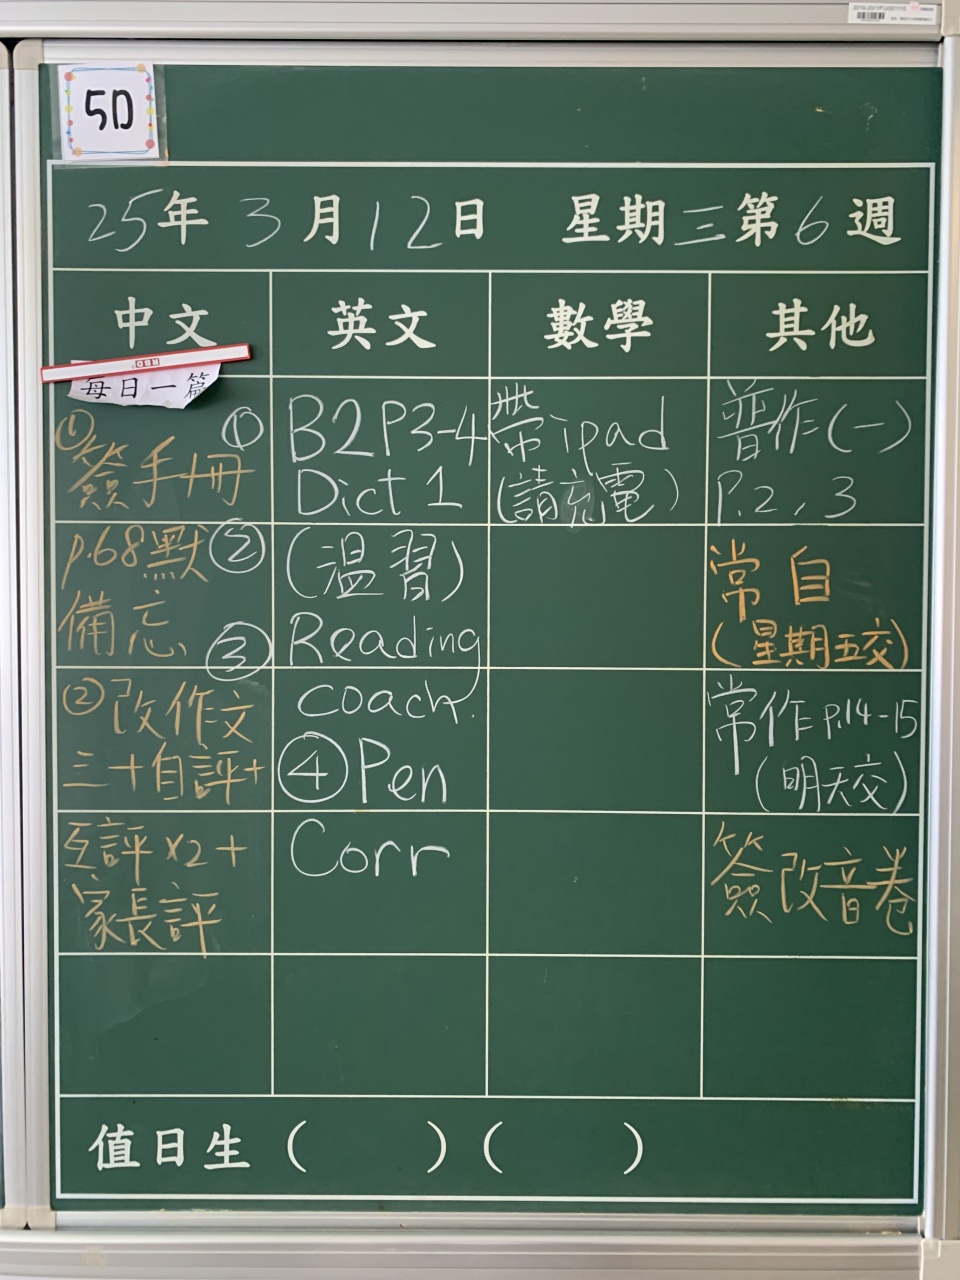 5D
25年 3月12日 星期三第6週
中文
英文
數學
其他
每日一篇
①簽手冊
p.68默
備忘
②改作文
三十自評+
互評x2+
家長評
①B2P3-4
Dict 1
②(溫習)
③Reading
coach.
④Pen
Corr
帶ipad
(請充電)
普作(一)
P.2,3
常自
(星期五交)
常作p.14-15
(明天交)
簽改音卷
值日生( )( )